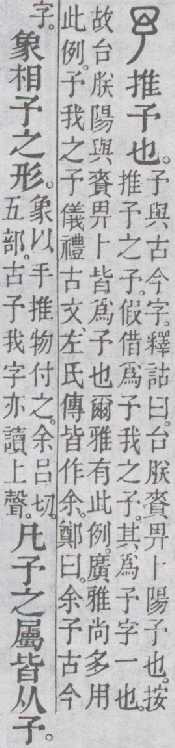 推予也。予與古今字。釋詁曰。台朕賚畀卜陽予也。按
推予之予、假借爲予我之予。其爲予字一也。
故台朕陽與賚畀卜皆爲予也爾雅有此例。廣雅尚多用
此例。予我之予儀禮古文左氏傳皆作余。鄭曰。余予古今
字。象相予之形。象以手推物付之。余呂切
五部。古予我字亦讀上聲。凡予之屬皆从予。